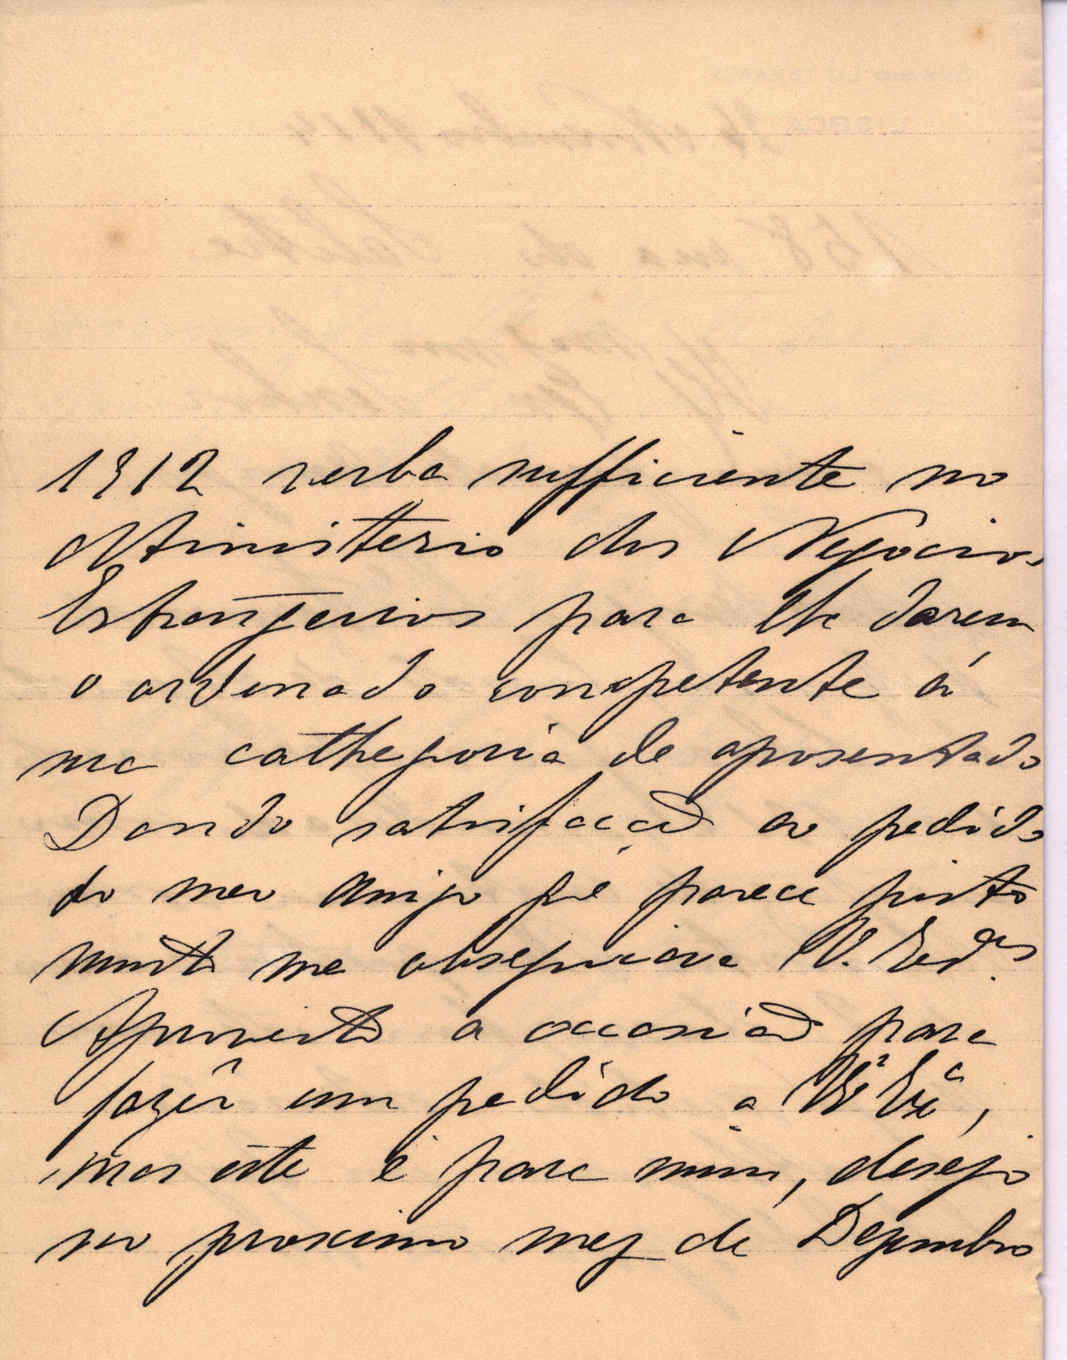 1912 verba sufficiente no
Ministerio dos Negocios
Estrangeiros para lhe darem
o ordenado competente á
sua cathegoria de aposentado
Dando satisfacçaõ ao pedido
do meu amigo que parece justo
muito me obsequiava V. Ex.as
Aproveito a occasiaõ para
fazêr um pedido a V.ª Ex.ª,
mas este é para mim, desejo
no proximo mez de Dezembro